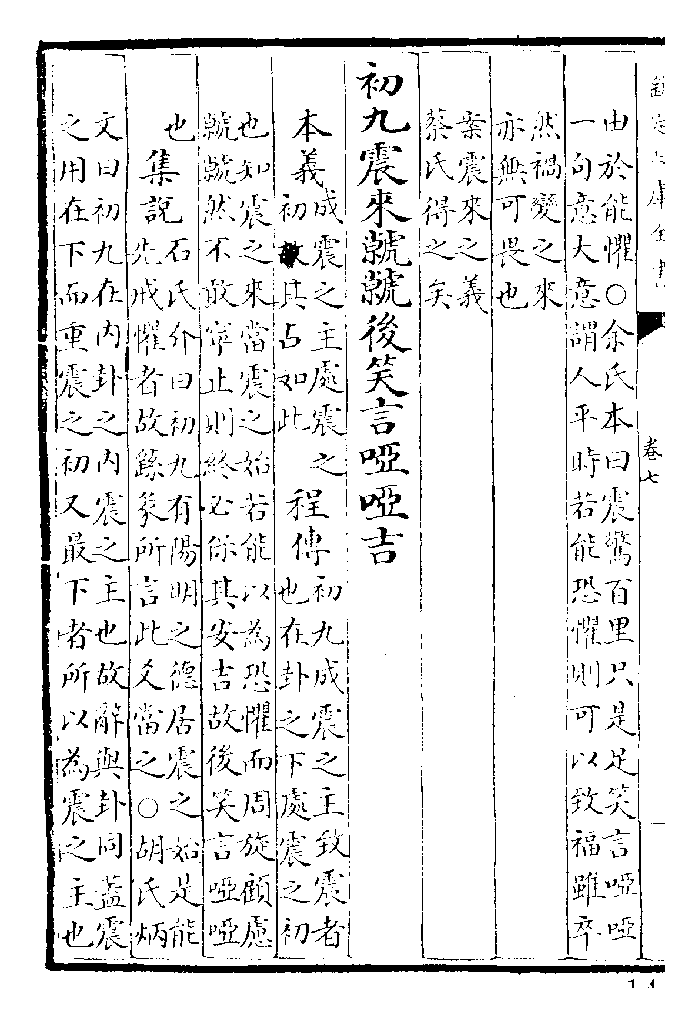 欽定四庫全書
卷七
由於能懼○余氏本曰震驚百里只是足笑言啞啞
一句意大意謂人平時若能恐懼則可以致福雖卒
然禍變之來
亦無可畏也
案震來之義
蔡氏得之矣
初九震來虩虩後笑言啞啞吉
本義
成震之主處震之
初故其占如此
程傳
初九成震之主致震者
也在卦之下處震之初
也知震之來當震之始若能以為恐懼而周旋顧慮
虩虩然不敢寧止則終必保其安吉故後笑言啞啞
也
集說
石氏介曰初九有陽明之德居震之始是能
先戒懼者故繇彖所言此爻當之○胡氏炳
文曰初九在内卦之内震之主也故辭與卦同蓋震
之用在下而重震之初又最下者所以為震之主也